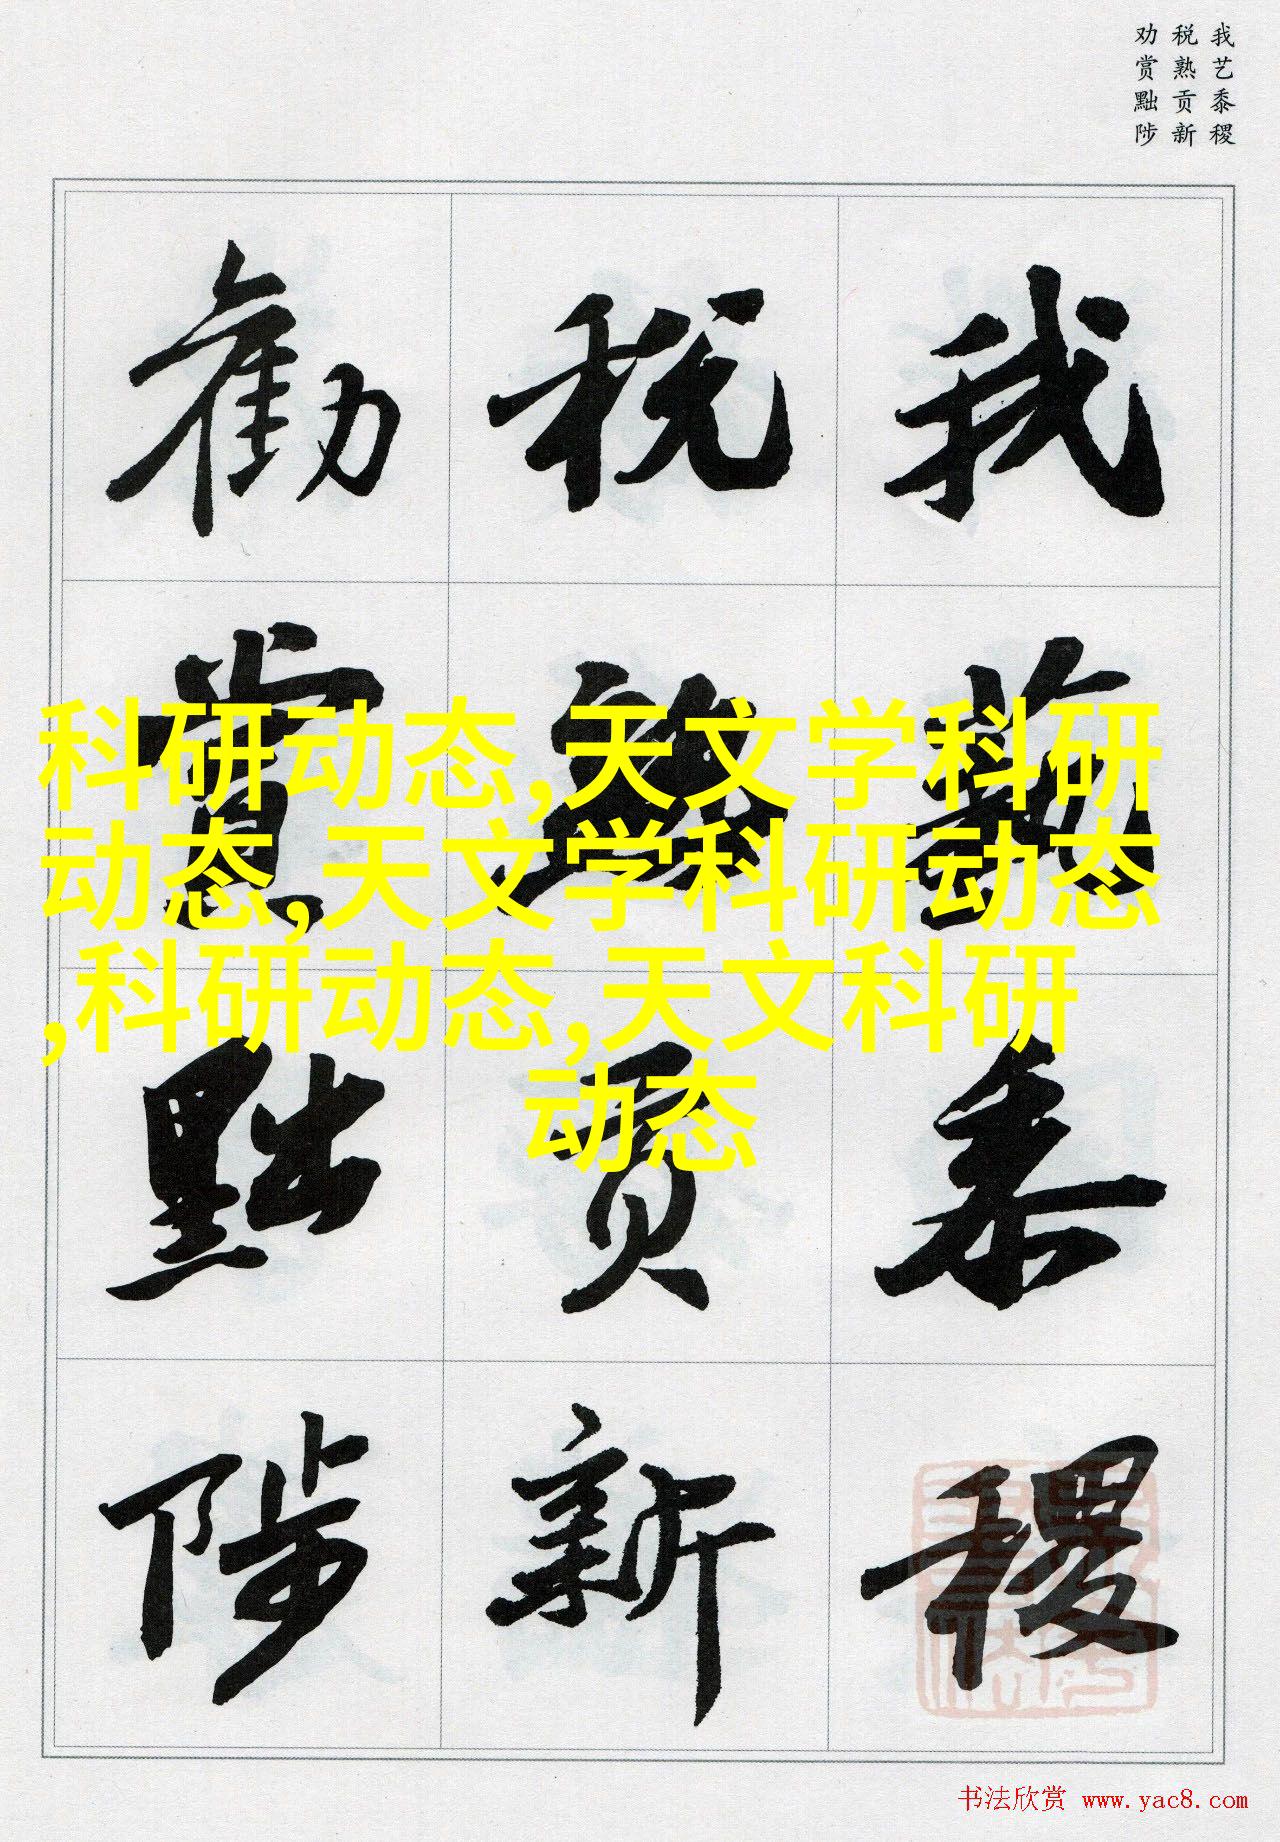 我艺黍稷
税熟贡新
劝赏黜陟
我
藝
黍
稷
税
熟
貢
新
勸
賞
黜
陟
科研动态,天文学科研
动态,天文学科研动态
,科研动态,天文科研
动态
书法欣赏 www.yac8.com